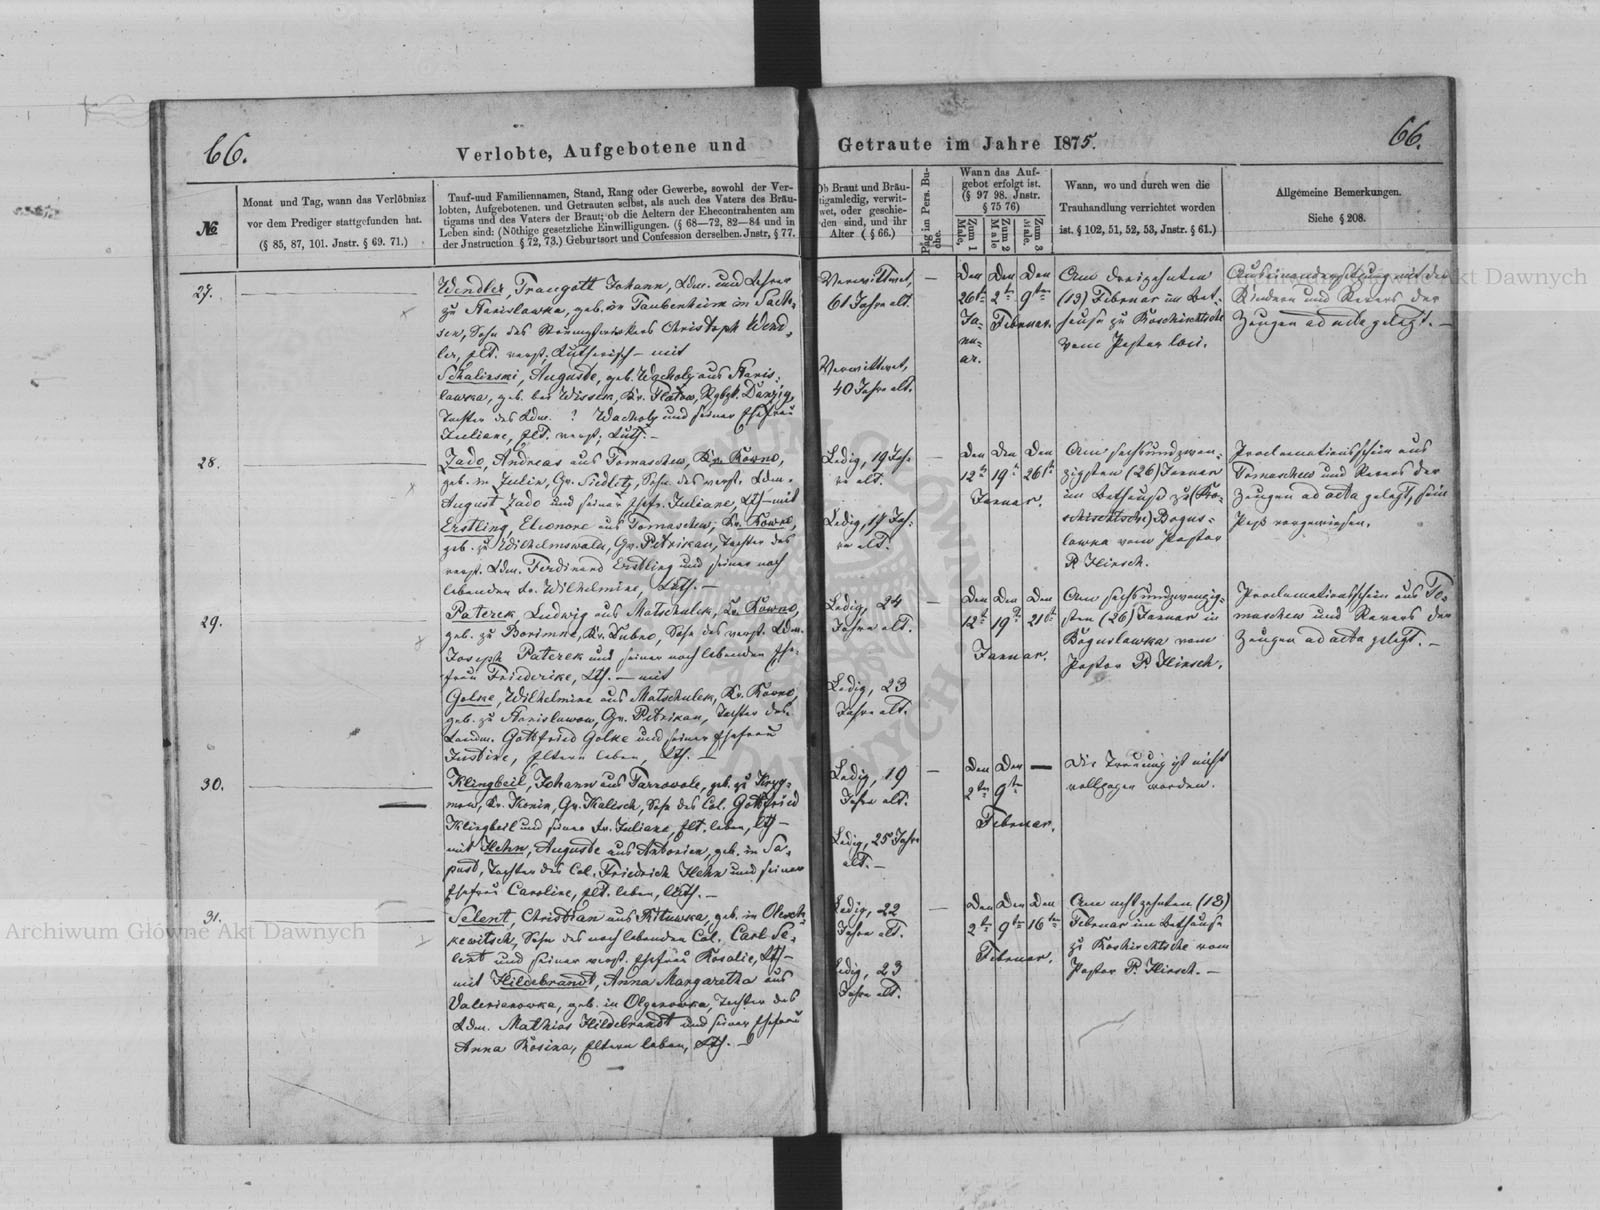 66.
Verlobte, Aufgebotene und
Getraute im Jahre 1875.
66.
№
Monat und Tag, wann das Verlöbnisz
vor dem Prediger stattgefunden hat.
(§ 85, 87, 101. Jnstr. § 69. 71.)
Tauf-und Familiennamen, Stand, Rang oder Gewerbe, sowohl der Ver-
lobten, Aufgebotenen. und Getrauten selbst, als auch des Vaters des Bräu-
tigams und des Vaters der Braut; ob die Aeltern der Ehecontrahenten am
Leben sind: (Nöthige gesetzliche Einwilligungen. (§ 68—72, 82—84 und in
der Jnstruction § 72, 73.) Geburtsort und Confession derselben. Jnstr, § 77.
Ob Braut und Bräu-
tigam ledig, verwit-
wet, oder geschie-
den sind, und ihr
Alter ( § 66.)
Pag in Pers. Bu-
che.
Wann das Auf-
gebot erfolgt ist.
(§ 97 98. Jnstr.
§ 75 76)
Zum 1 Male,
Zum 2 Male
Zum 3 Male.
Wann, wo und durch wen die
Trauhandlung verrichtet worden
ist. § 102, 51, 52, 53, Jnstr. § 61.)
Allgemeine Bemerkungen.
Siehe § 208.
27.
Wendler, Traugott Johann, Ldm. und Lehrer
zu Stanislawka, geb. in Taubenheim in Sach-
sen, Sohn des Christoph Wend-
ler, Elt. verst., Lutherisch – mit
Schalinski, Auguste, geb. Wacholz aus Stanis-
lawka, geb. bei Wissek, Kr. Flatow, Rgbzk. Danzig,
Tochter des Ldm. ? Wacholz und seiner Ehefrau
Juliane, Elt. verst., Luth. –
Verwittwet,
61 Jahre alt.
Verwittwet,
40 Jahre alt.
—
Den Den Den
26t. 2t. 9ten
Ja- Februar.
nu-
ar.
Am dreizehnten
(13) Februar im Bet-
hause zu Roschischtsche
vom Pastor loci.
Auseinandersetzung mit den
Kindern und Revers der
Zeugen ad acta gelegt. –
28.
Zado, Andreas aus Tomaschew, Kr. Rowno,
geb. in Julin, Gv. Siedletz, Sohn des verst. Ldm.
August Zado und seiner Ehefr. Juliane, Lth – mit
Erstling, Eleonore aus Tomaschew, Kr. Rowno,
geb. zu Wilhelmswald, Gv. Petrikau, Tochter des
verst. Ldm. Ferdinand Erstling und seiner noch
lebenden Fr. Wilhelmine, Lth. –
Ledig, 19 Jah-
re alt.
Ledig, 17 Jah-
re alt.
—
Den Den Den
12t. 19t. 26t.
Januar.
Am sechsundzwan-
zigsten (26) Januar
im Bethause zu (Ro-
schischtsche) Bogus-
lawka vom Pastor
P. Hirsch.
Proclamationsschein aus
Tomaschew und Revers der
Zeugen ad acta gelegt, sein
Paß vorgewiesen.
29.
Paterek, Ludwig aus Matschulek, Kr. Rowno,
geb. zu Kr. Dubno, Sohn des verst. Ldm.
Joseph Paterek und seiner noch lebenden Ehe-
frau Friederike, Lth. – mit
Golke, Wilhelmine aus Matschulek, Kr. Rowno,
geb. zu Stanislawow, Gv. Petrikau, Tochter des
Landm. Gottfried Golke und seiner Ehefrau
Justine, Eltern leben, Lth. –
Ledig, 24
Jahre alt.
Ledig, 23
Jahre alt.
—
Den Den Den
12t. 19t. 21t.
Januar.
Am sechsundzwanzig-
sten (26) Januar in
Boguslawka vom
Pastor P. Hirsch.
Proclamationsschein aus To-
maschew und Revers der
Zeugen ad acta gelegt. –
30.
Klingbeil, Johann aus Tarnowole, geb. zu
Kr. Konin, Gv. Kalisch, Sohn des Col. Gottfried
Klingbeil und seiner Fr. Juliane, Elt. leben, Lth –
mit Hehn, Auguste aus Antonien, geb. in Sa-
pust, Tochter des Col. Friedrich Hehn und seiner
Ehefrau Caroline, Elt. leben, Luth. –
Ledig, 19
Jahre alt.
Ledig, 25 Jahre
alt. –
—
Den Den —
2ten 9ten
Februar.
Die Trauung ist nicht
vollzogen worden.
31.
Selent, Christian aus Rituwka, geb. in Olesch-
kewitsch, Sohn des noch lebenden Col. Carl Se-
lent und seiner verst. Ehefrau Rosalie, Lth –
mit Hildebrandt, Anna Margaretha aus
Valerianowka, geb. in Olganowka, Tochter des
Ldm. Mathias Hildebrandt und seiner Ehefrau
Anna Rosina, Eltern leben, Lth. –
Ledig, 22
Jahre alt.
Ledig, 23
Jahre alt.
—
Den Den Den
2t. 9ten 16ten
Februar.
Am achtzehnten (18)
Februar im Bethause
zu Roschischtsche vom
Pastor P. Hirsch. –
Archiwum Główne Akt Dawnych
Archiwum Główne Akt Dawnych